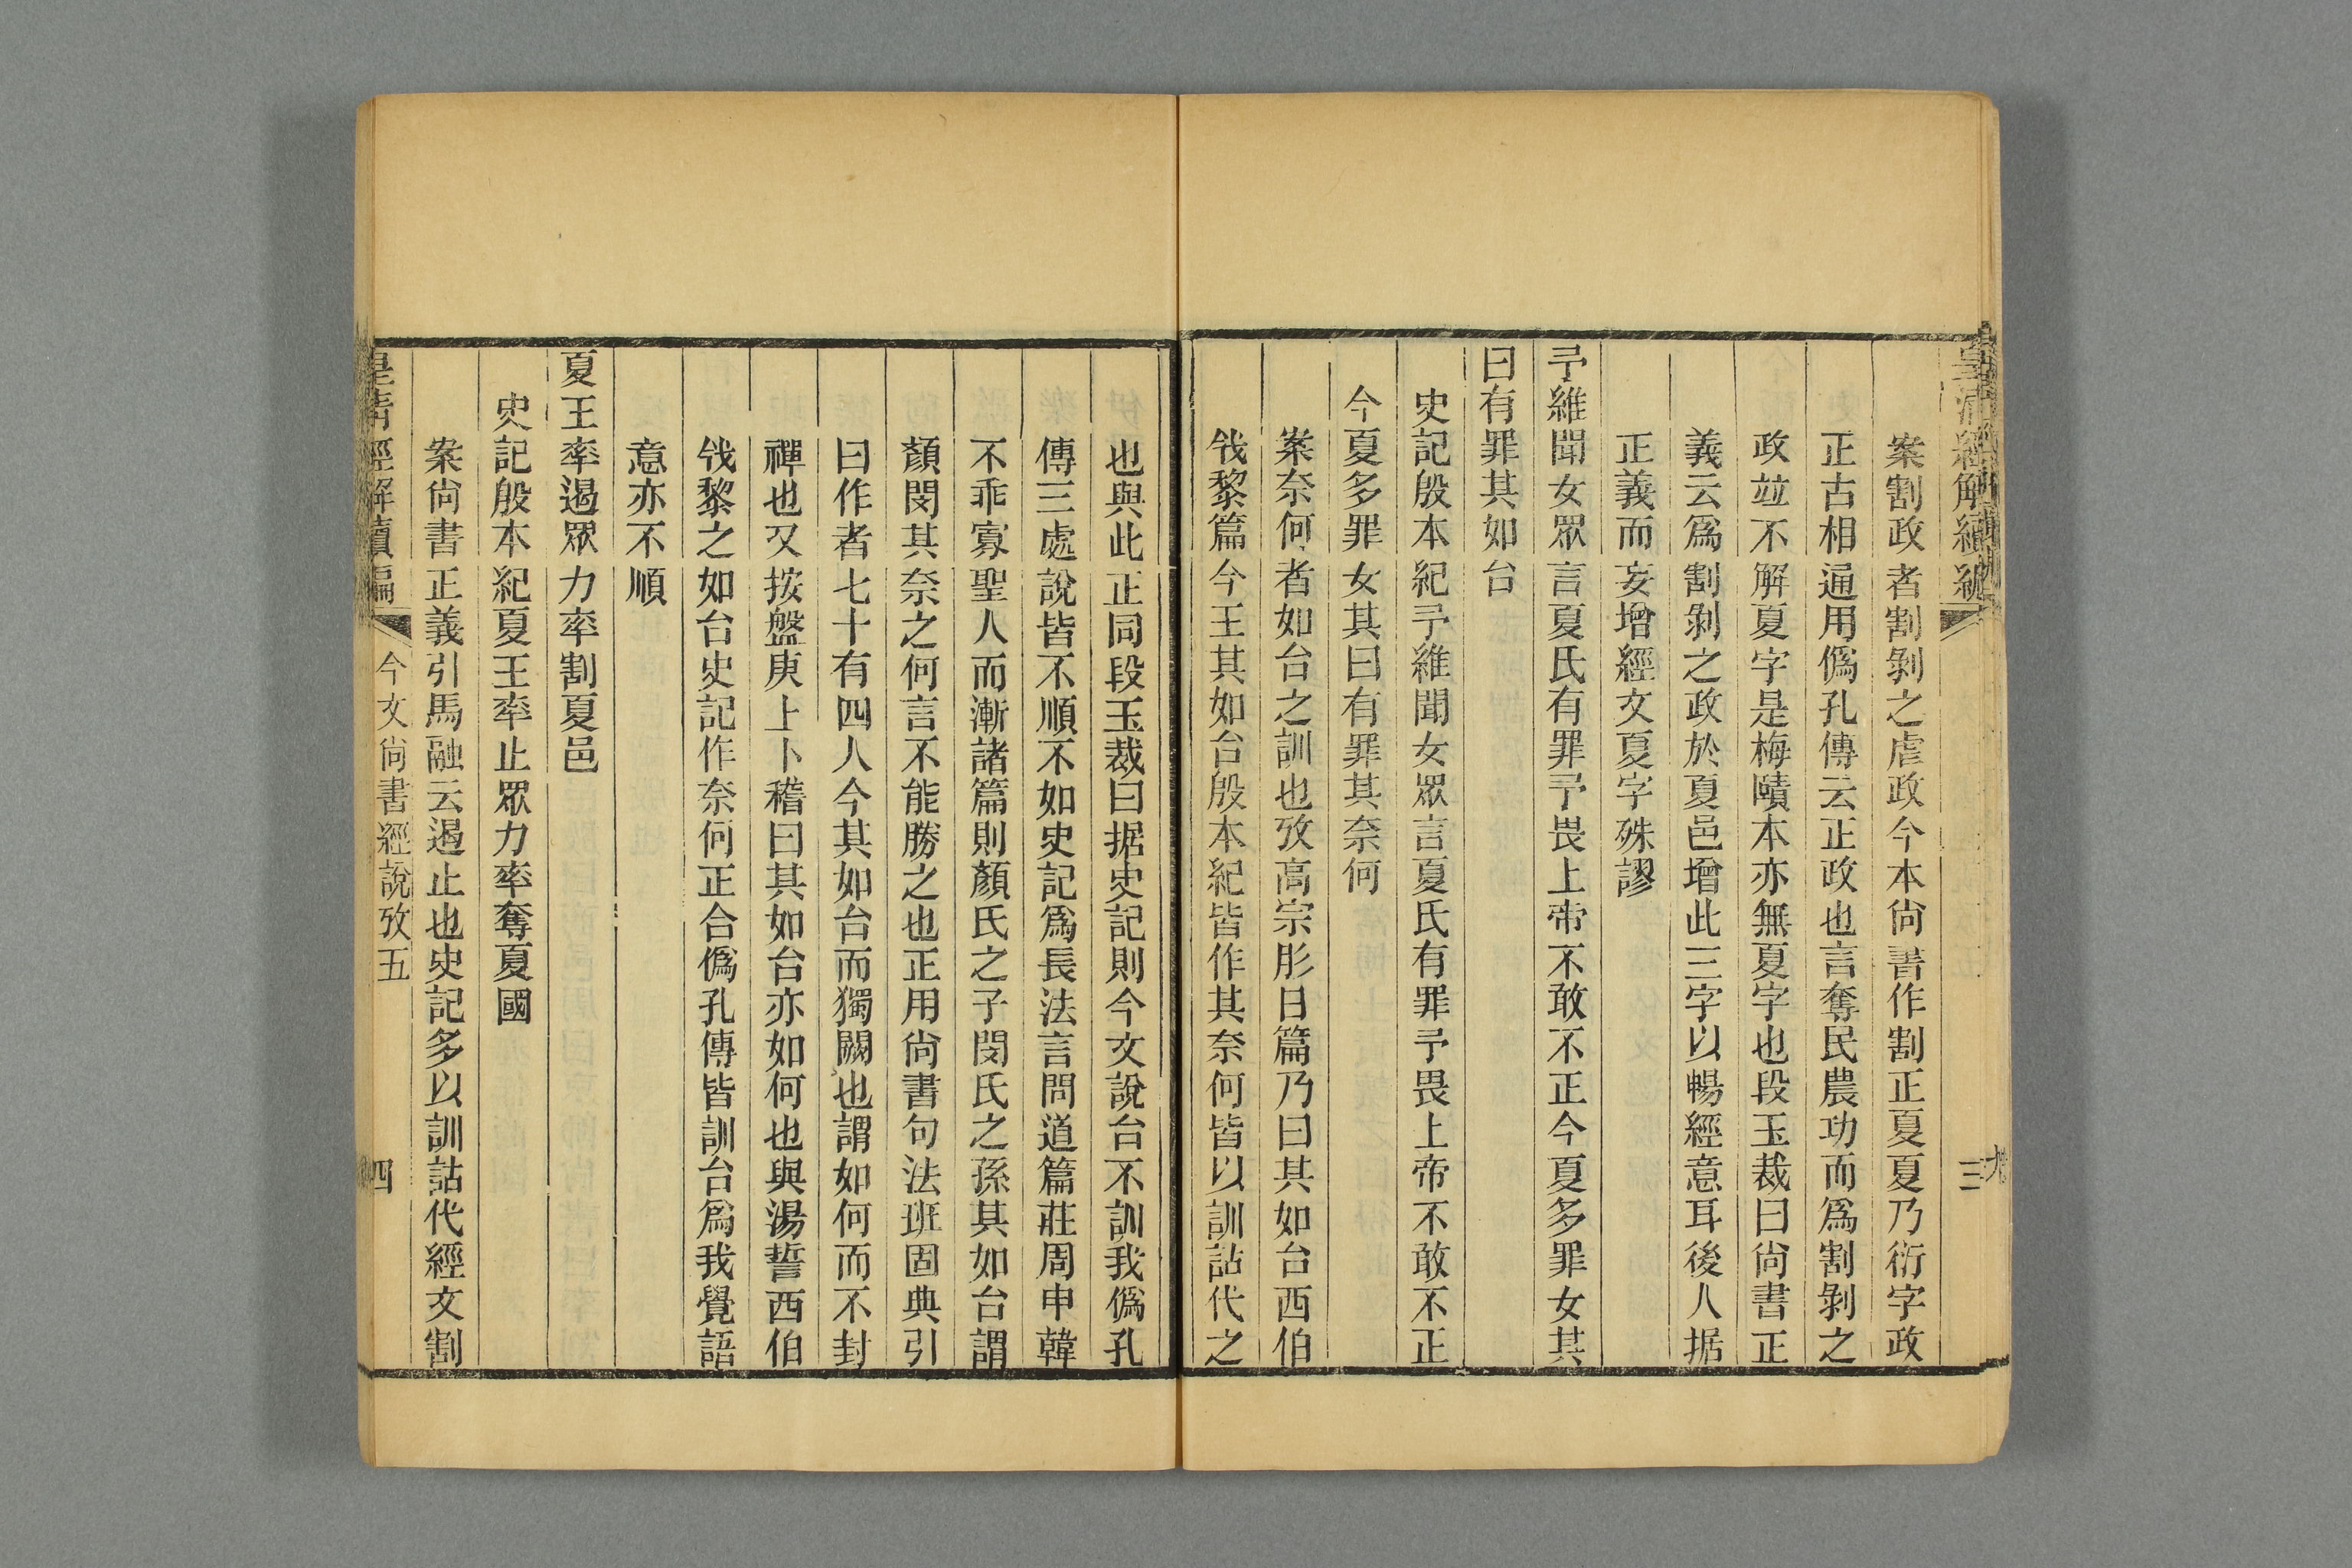 皇清經解續編
三
案割政者割剝之虐政今本尙書作割正夏夏乃衍字政
正古相通用僞孔傳云正政也言奪民農功而爲割剝之
政竝不解夏字是梅賾本亦無夏字也段玉裁曰尙書正
義云爲割剝之政於夏邑增此三字以暢經意耳後人据
正義而妄增經文夏字殊謬
予維聞女眾言夏氏有罪予畏上帝不敢不正今夏多罪女其
曰有罪其如台
史記殷本紀予維聞女眾言夏氏有罪予畏上帝不敢不正
今夏多罪女其曰有罪其奈何
案奈何者如台之訓也攷高宗肜日篇乃曰其如台西伯
戗黎篇今王其如台殷本紀皆作其奈何皆以訓詁代之
也與此正同段玉裁曰据史記則今文說台不訓我僞孔
傳三處說皆不順不如史記爲長法言問道篇莊周申韓
不乖寡聖人而漸諸篇則顏氏之子閔氏之孫其如台謂
顏閔其奈之何言不能勝之也正用尙書句法班固典引
曰作者七十有四人今其如台而獨闕也謂如何而不封
禪也又按盤庚上卜稽曰其如台亦如何也與湯誓西伯
戗黎之如台史記作奈何正合僞孔傳皆訓台爲我覺語
意亦不順
夏王率遏眾力率割夏邑
史記殷本紀夏王率止眾力率奪夏國
案尙書正義引馬融云遏止也史記多以訓詁代經文割
皇清經解續編
今文尙書經說攷五
四